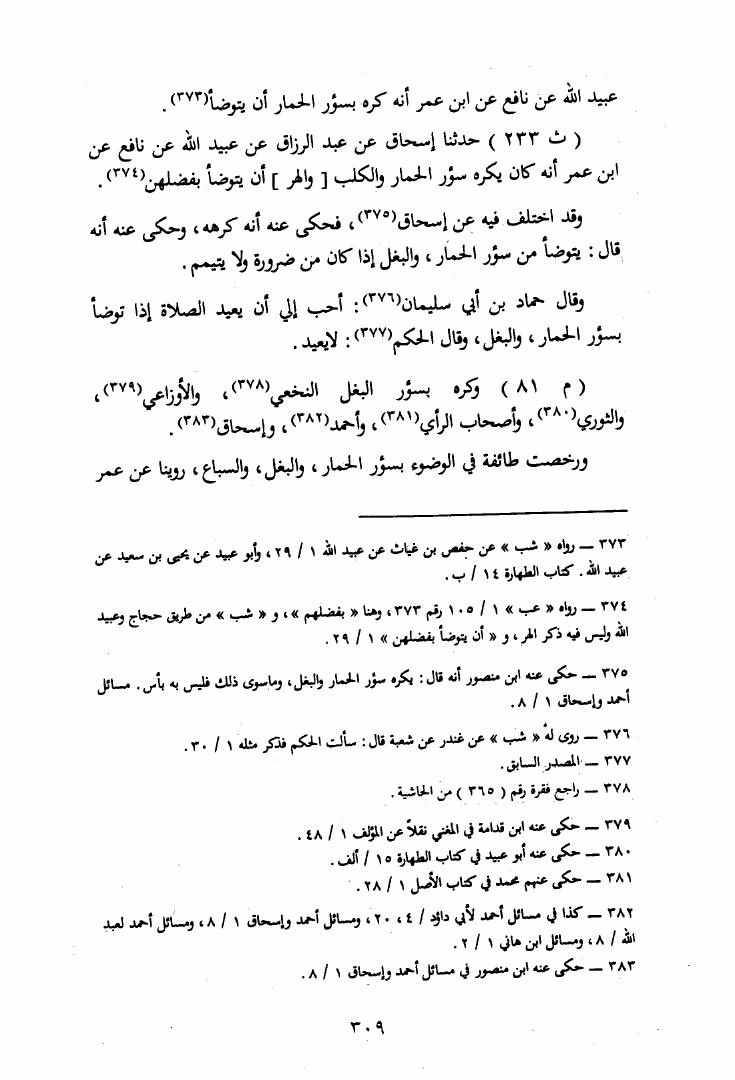 عبيد الله عن نافع عن ابن عمر أنه كره بسؤر الحمار أن يتوضأ(٣٧٣).
( ث ٢٣٣ ) حدثنا إسحاق عن عبد الرزاق عن عبيد الله عن نافع عن
ابن عمر أنه كان يكره سؤر الحمار والكلب [ والهر ] أن يتوضأ بفضلهن(٣٧٤).
وقد اختلف فيه عن إسحاق(٣٧٥)، فحكى عنه أنه كرهه، وحكى عنه أنه
قال : يتوضأ من سؤر الحمار ، والبغل إذا كان من ضرورة ولا يتيمم .
وقال حماد بن أبي سليمان(٣٧٦): أحب إلي أن يعيد الصلاة إذا توضأ
بسؤر الحمار ، والبغل، وقال الحكم(٣٧٧): لايعيد .
( م ٨١ ) وكره بسؤر البغل النخعي(٣٧٨)، والأوزاعي(٣٧٩)،
والثوري(٣٨٠)، وأصحاب الرأي(٣٨١)، وأحمد(٣٨٢)، وإسحاق(٣٨٣).
ورخصت طائفة في الوضوء بسؤر الحمار ، والبغل، والسباع، روينا عن عمر
٣٧٣ — رواه « شب » عن حفص بن غياث عن عبيد الله ١ / ٢٩، وأبو عبيد عن يحيى بن سعيد عن
عبيد الله . كتاب الطهارة ١٤ / ب .
٣٧٤ — رواه « عب » ١ / ١٠٥ رقم ٣٧٣، وهنا « بفضلهم »، و « شب » من طريق حجاج وعبيد
الله وليس فيه ذكر الهر، و « أن يتوضأ بفضلهن » ١ / ٢٩ .
٣٧٥ — حكى عنه ابن منصور أنه قال : يكره سؤر الحمار والبغل، وماسوى ذلك فليس به بأس . مسائل
أحمد وإسحاق ١ / ٨ .
٣٧٦ — روى له « شب » عن غندر عن شعبة قال : سألت الحكم فذكر مثله ١ / ٣٠ .
٣٧٧ — المصدر السابق .
٣٧٨ — راجع فقرة رقم ( ٣٦٥ ) من الحاشية .
٣٧٩ — حكى عنه ابن قدامة في المغني نقلاً عن المؤلف ١ / ٤٨ .
٣٨٠ — حكى عنه أبو عبيد في كتاب الطهارة ١٥ / ألف .
٣٨١ — حكى عنهم محمد في كتاب الأصل ١ / ٢٨ .
٣٨٢ — كذا في مسائل أحمد لأبي داؤد / ٤، ٢٠، ومسائل أحمد وإسحاق ١ / ٨، ومسائل أحمد لعبد
الله / ٨، ومسائل ابن هاني ١ / ٢ .
٣٨٣ — حكى عنه ابن منصور في مسائل أحمد وإسحاق ١ / ٨ .
٣٠٩